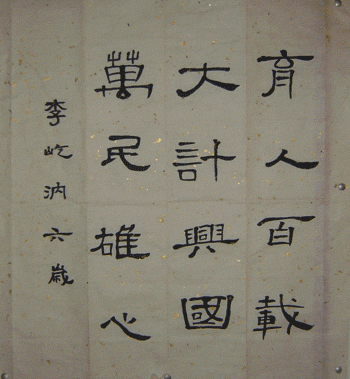 育人百載
大計興國
萬民雄心
李屹汭六歲